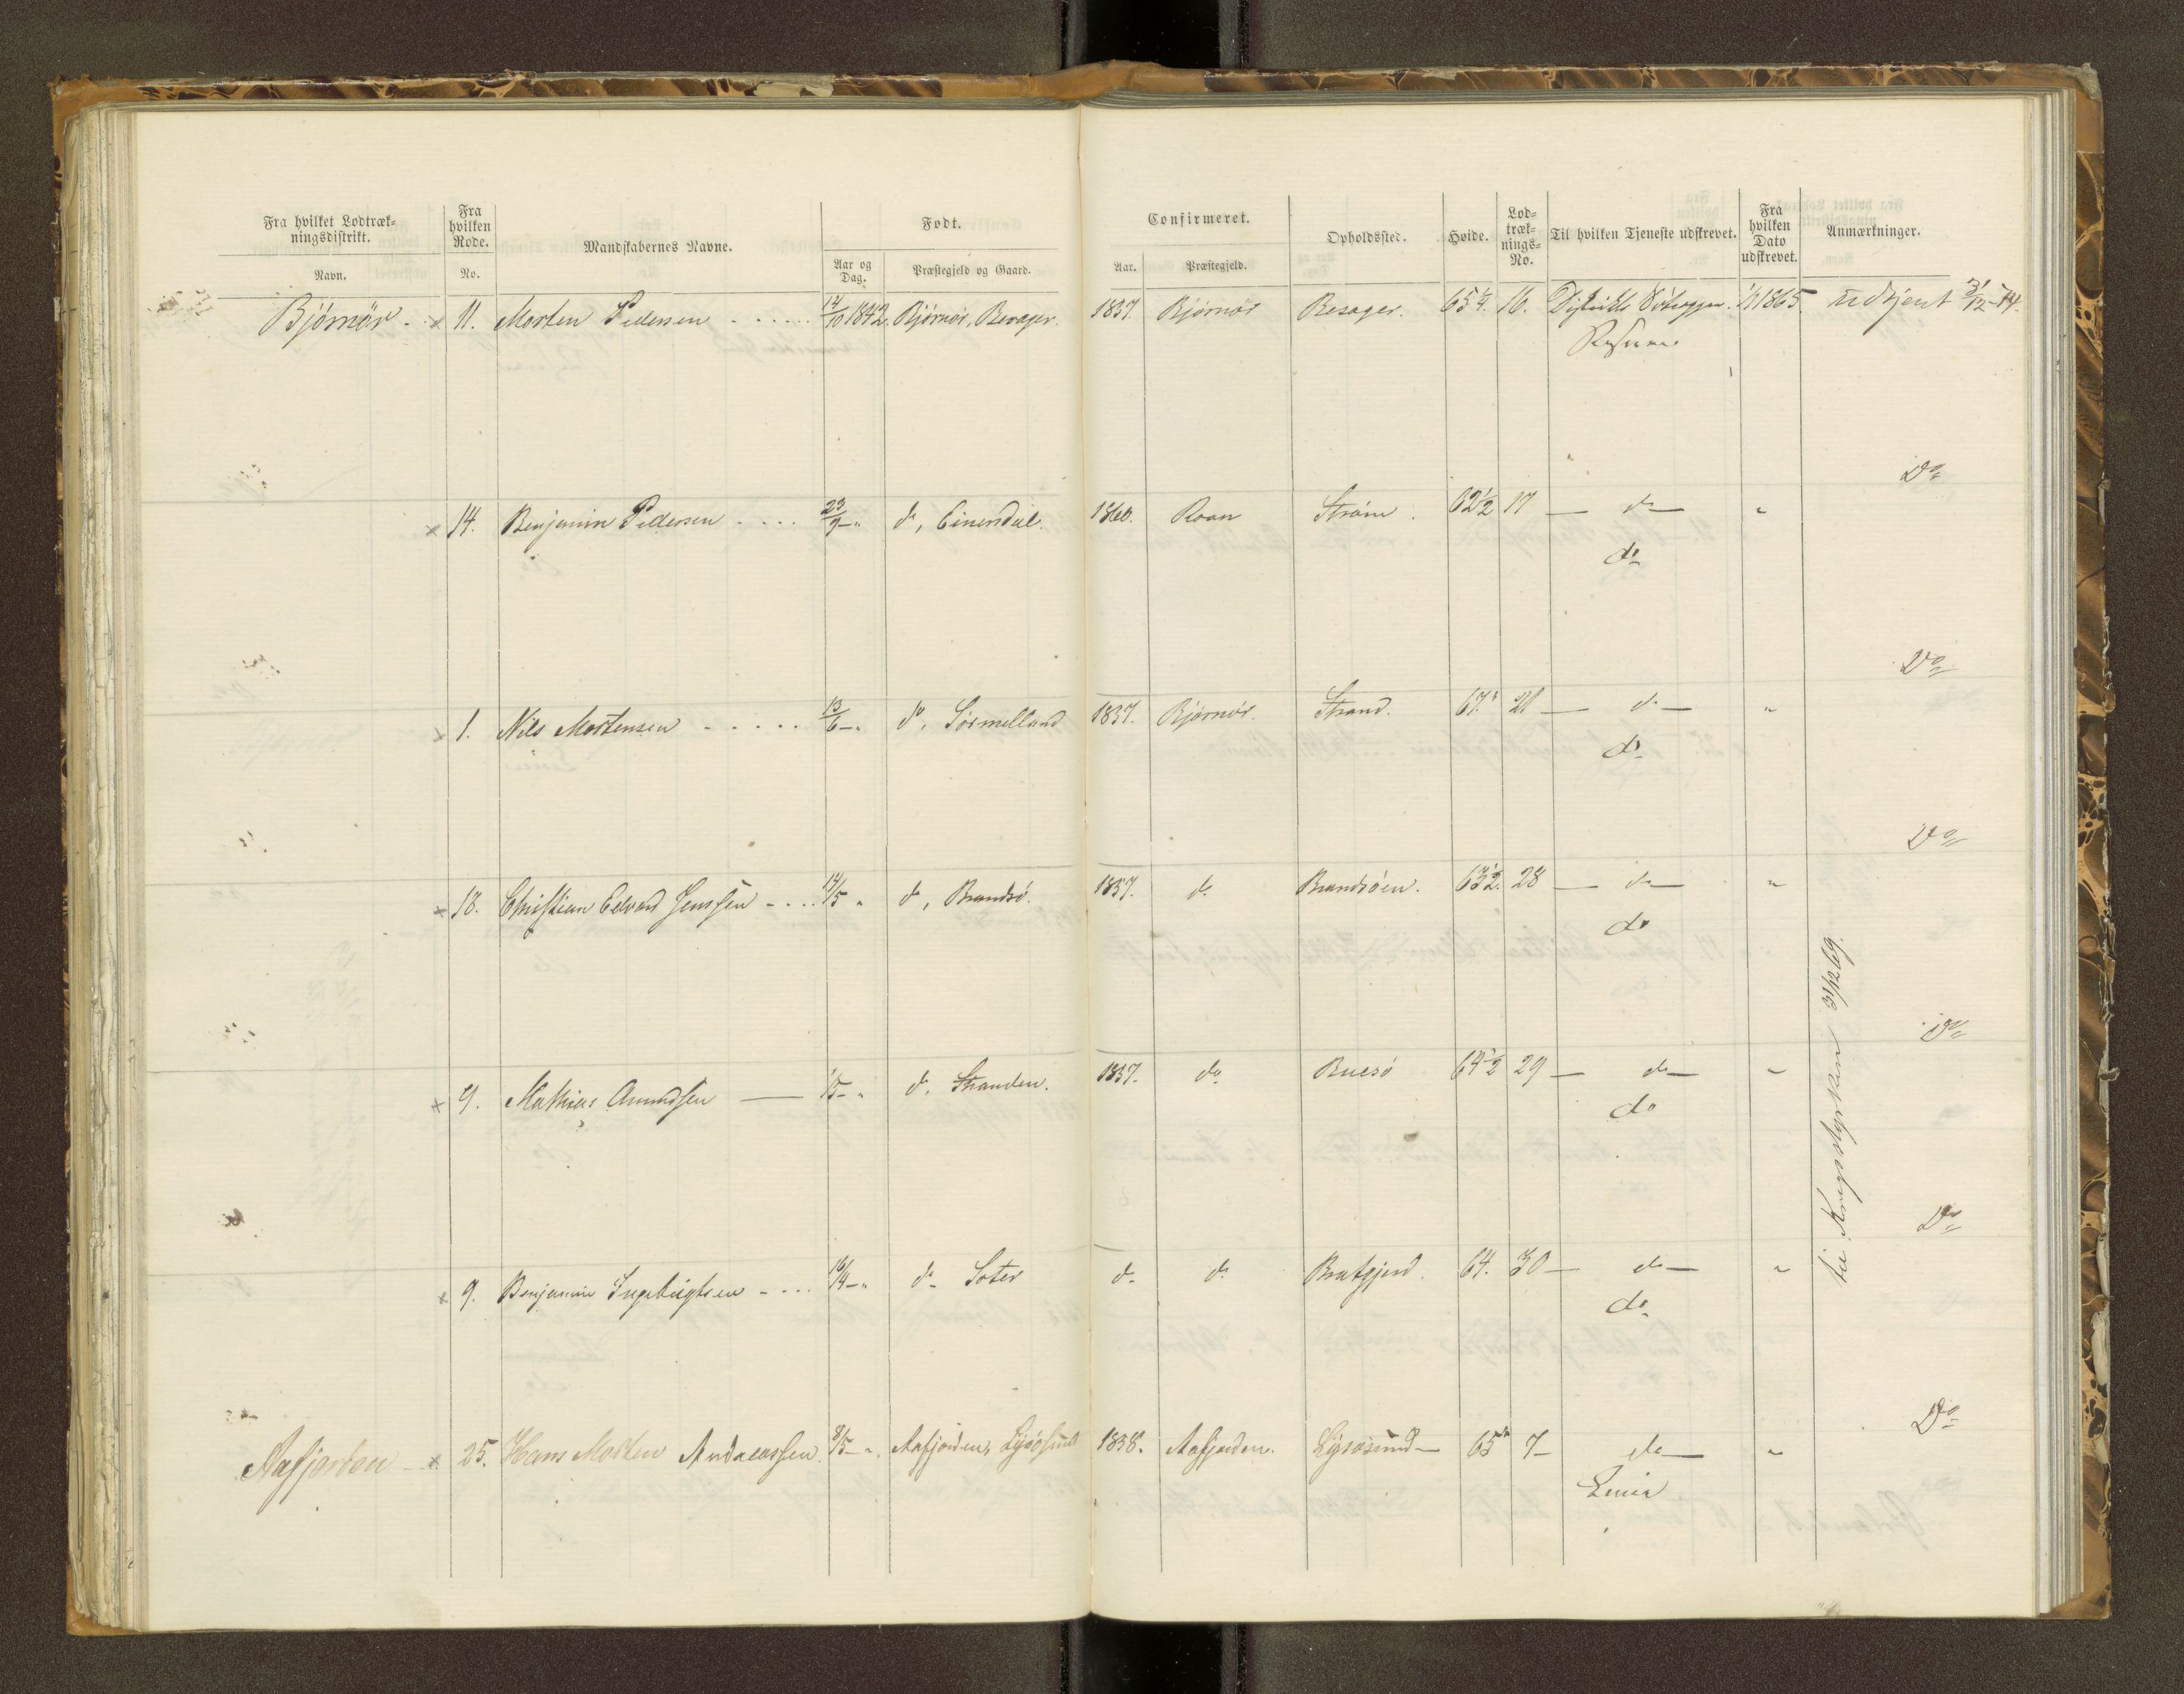 Fra hvilket Lodtræk-
ningsdistrikt.
Navn.
Fra
hvilken
Rode.
No.
Mandskabernes Navne.
Født.
Aar og
Dag.
Præstegjeld og Gaard.
Confirmeret.
Aar.
Præstegjeld.
Opholdssted.
Høide.
Lod-
træk-
nings-
No.
Til hvilken Tjeneste udskrevet.
Fra
hvilken
Dato
udskrevet.
Anmærkninger.
Bjørnör 11. Morten Pedersen 14/10 1842. Bjørnör, Besager. 1857. Bjørnör Besager. 65 1/4. 16. 1/1 1865. Udtjent 31/12-74.
Reserve
Do
14. Benjamin Pedersen 23/9 - " do, Einersdal. 1860. Roan Strøm. 62 1/2 17 — do — "
do
Do
1. Nils Mortensen 13/6 - " do, Sörmelland 1857. Bjørnör. Strand. 67" 21 — do — "
do
Do
18. Christian Edvard Jenssen 14/5 " do, Brandsö. 1857. do Brandsöen. 63 1/2. 28 — do — "
do
Do
9. Mathias Amundsen 1/5 - " do, Stranden. 1857. do Buesö 64 1/2 29 — do — "
do
Do
9. Benjamin Ingebrigtsen 16/4 - " do Soter do do Bratgjerd. 64. 30 — do — "
do
Do
Aafjorden 25. Hans Morten Andreassen. 8/5 - " Aafjorden, Lysösund 1858. Aafjorden. Lysösund 65" 7 — do — "
Linie
til Krigsstyrken 31/12 69.